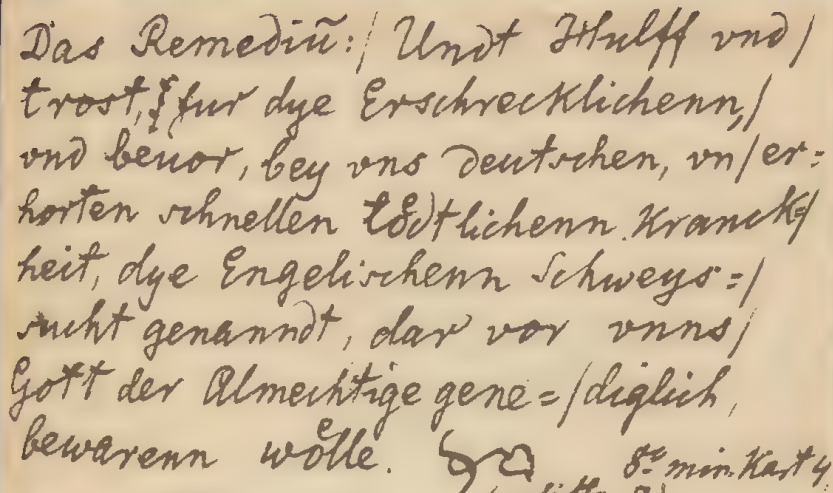 Das Remediū:/ Undt Hulff vnd/
trost, fur dye Erschrecklichenn,/
vnd beuor, bey vns deutschen, vn/er=
horten schnellen tödtlichenn Kranck=/
heit, dye Engelischenn Schweys=/
sucht genanndt, dar vor vnns/
Gott der Almechtige gene=/diglich,
bewarenn woͤlle.
8° min. Kart 4